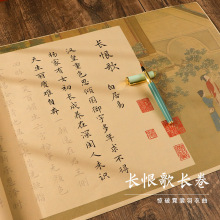 长恨歌
白居易
汉皇重色思倾国御宇多年求不得
杨家有女初长成养在深闺人未识
天生丽质难自弃
长恨歌长卷
惊破霓裳羽衣曲